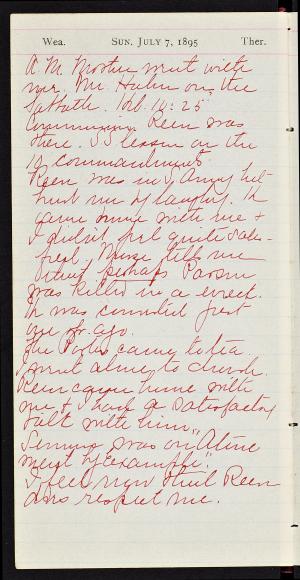 Wea. SUN. JULY 7, 1895 Ther.
A.M. went with
me. Mr. on the
Sabbath. 14:25
Communion. Reen was
there. S.S. lesson on the
10 commandments
Reen was in S. Army but
hurt me by laughing. He
came home with me &
I didn't feel quite satis-
fied. Mame tells me
that perhaps
was killed in a wreck.
He was converted just
one yr. ago.
The came to tea
I went alone to church.
Reen came home with
me & I had a satisfactory
talk with him.
Sermon was on "Atone
ment by example".
I feel now that Reen
does respect me.